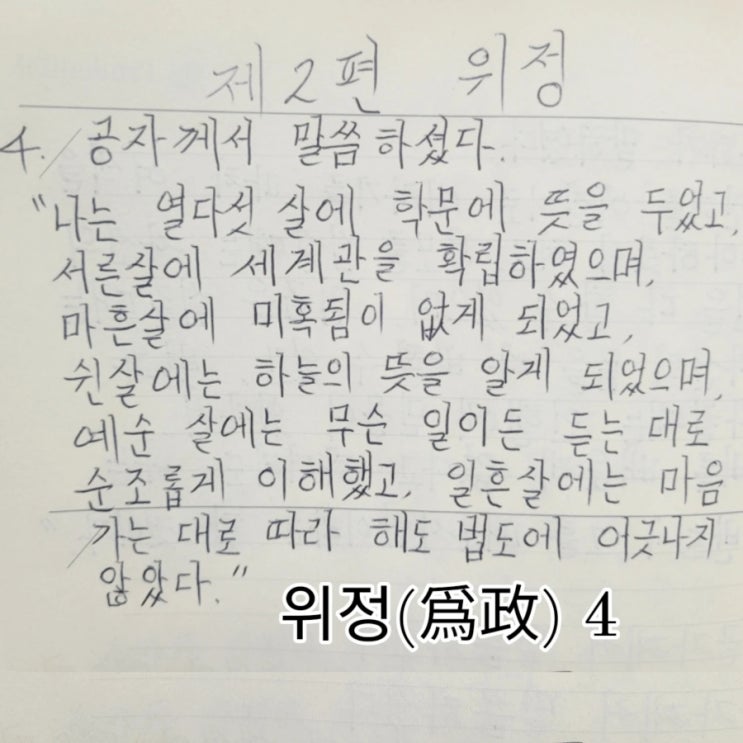 제2편 위정
4. 공자께서 말씀하셨다.
"나는 열다섯 살에 학문에 뜻을 두었고,
서른살에 세계관을 확립하였으며,
마흔살에 미혹됨이 없게 되었고,
쉰살에는 하늘의 뜻을 알게 되었으며,
예순 살에는 무슨 일이든 듣는 대로
순조롭게 이해했고, 일흔살에는 마음
가는 대로 따라 해도 법도에 어긋나지
않았다."
위정(爲政) 4